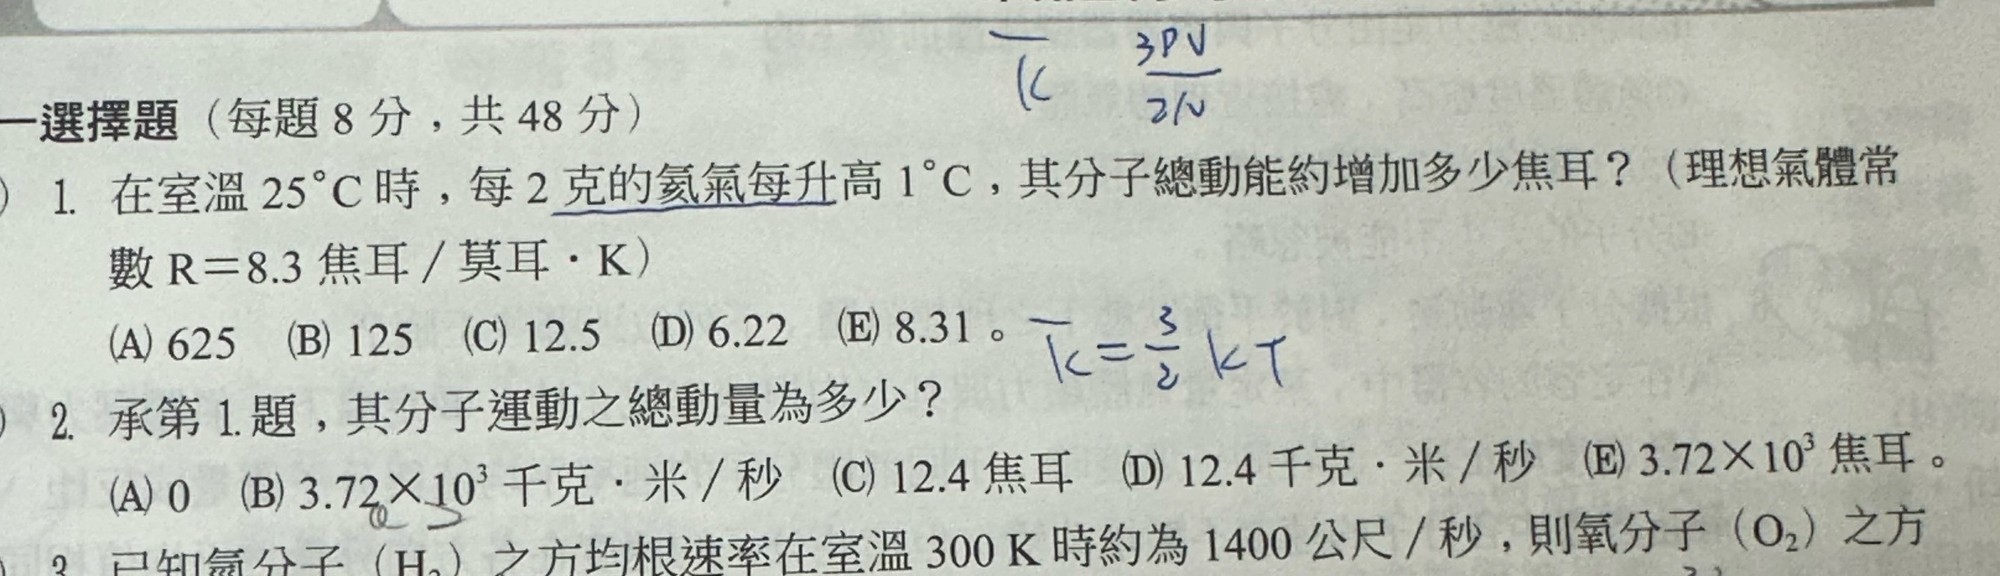 K̄ 3PV/2N
一選擇題（每題 8 分，共 48 分）
) 1. 在室溫 25°C 時，每 2 克的氦氣每升高 1°C，其分子總動能約增加多少焦耳？（理想氣體常
數 R＝8.3 焦耳 / 莫耳．K）
(A) 625 (B) 125 (C) 12.5 (D) 6.22 (E) 8.31。 K̄ = 3/2 kT
) 2. 承第 1. 題，其分子運動之總動量為多少？
(A) 0 (B) 3.72×10³ 千克．米 / 秒 (C) 12.4 焦耳 (D) 12.4 千克．米 / 秒 (E) 3.72×10³ 焦耳。
) 3. 已知氫分子（H₂）之方均根速率在室溫 300 K 時約為 1400 公尺 / 秒，則氧分子（O₂）之方